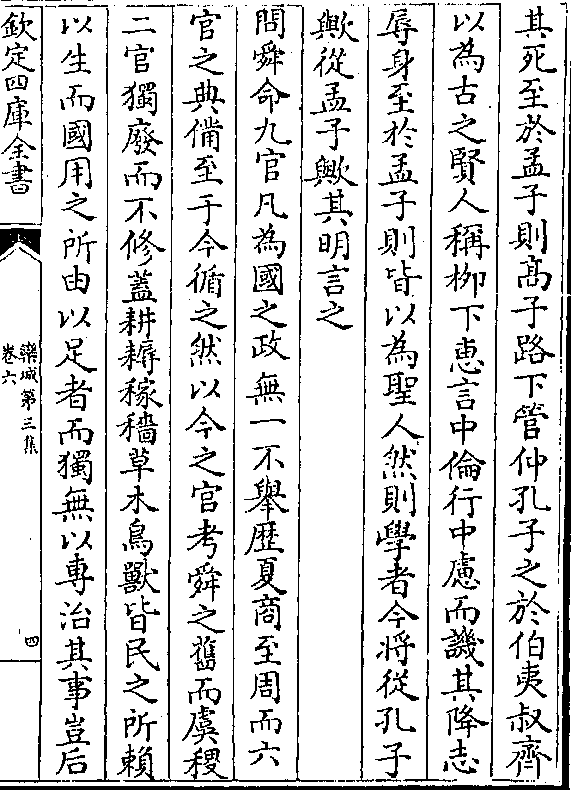 其死至於孟子則髙子路下管仲孔子之於伯夷叔齊
以為古之賢人稱栁下恵言中倫行中慮而譏其降志
辱身至於孟子則皆以為聖人然則學者今將從孔子
歟從孟子歟其明言之
問舜命九官凡為國之政無一不舉歴夏商至周而六
官之典備至于今循之然以今之官考舜之舊而虞稷
二官獨廢而不修蓋耕耨稼穡草木鳥獸皆民之所賴
以生而國用之所由以足者而獨無以専治其事豈后
欽定四庫全書
欒城第三集
卷六
四